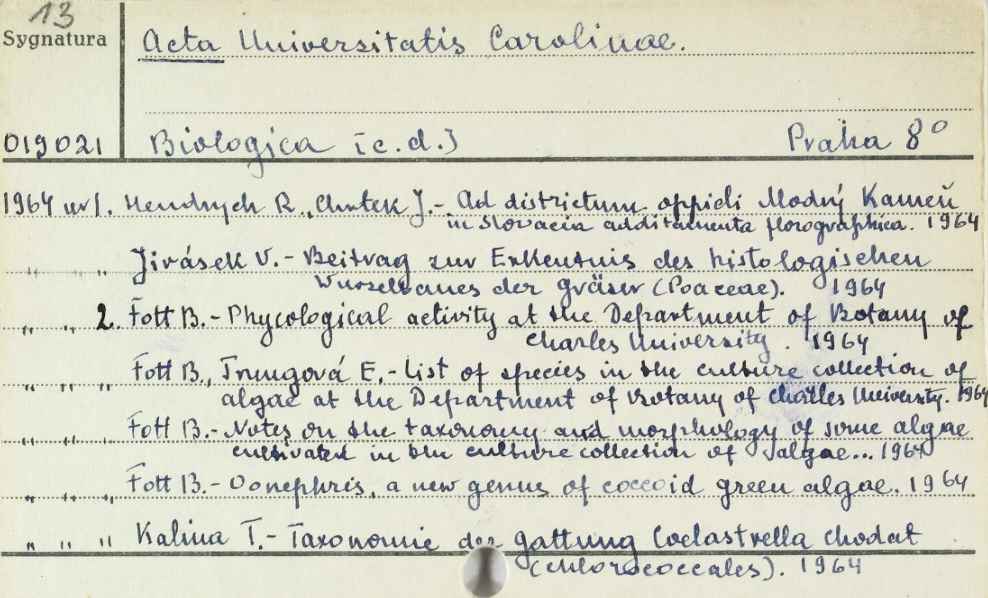 13
Sygnatura
Acta Universitatis Carolinae.
019021
Biologica [c.d.] Praha 8°
1964 nr 1. Hendrych R., Chrtek J. - Ad districtum oppidi Modrý Kameň
in Slovacia additamenta florographica. 1964
" " Jirásek V. - Beitrag zur Erkentnis des histologischen
Wurzelbaues der gräser (Poaceae). 1964
" " 2. Fott B. - Phycological activity at the Department of Botany of
Charles University. 1964
" " " Fott B., Truncová E. - List of species in the culture collection of
algae at the Department of Botany of Charles University. 1964
" " " Fott B. - Notes on the taxonomy and morphology of some algae
cultivated in the culture collection of algae... 1964
" " " Fott B. - Oonephris, a new genus of coccoid green algae. 1964
" " " Kalina T. - Taxonomie der gattung Coelastrella chodat
(chlorococcales). 1964